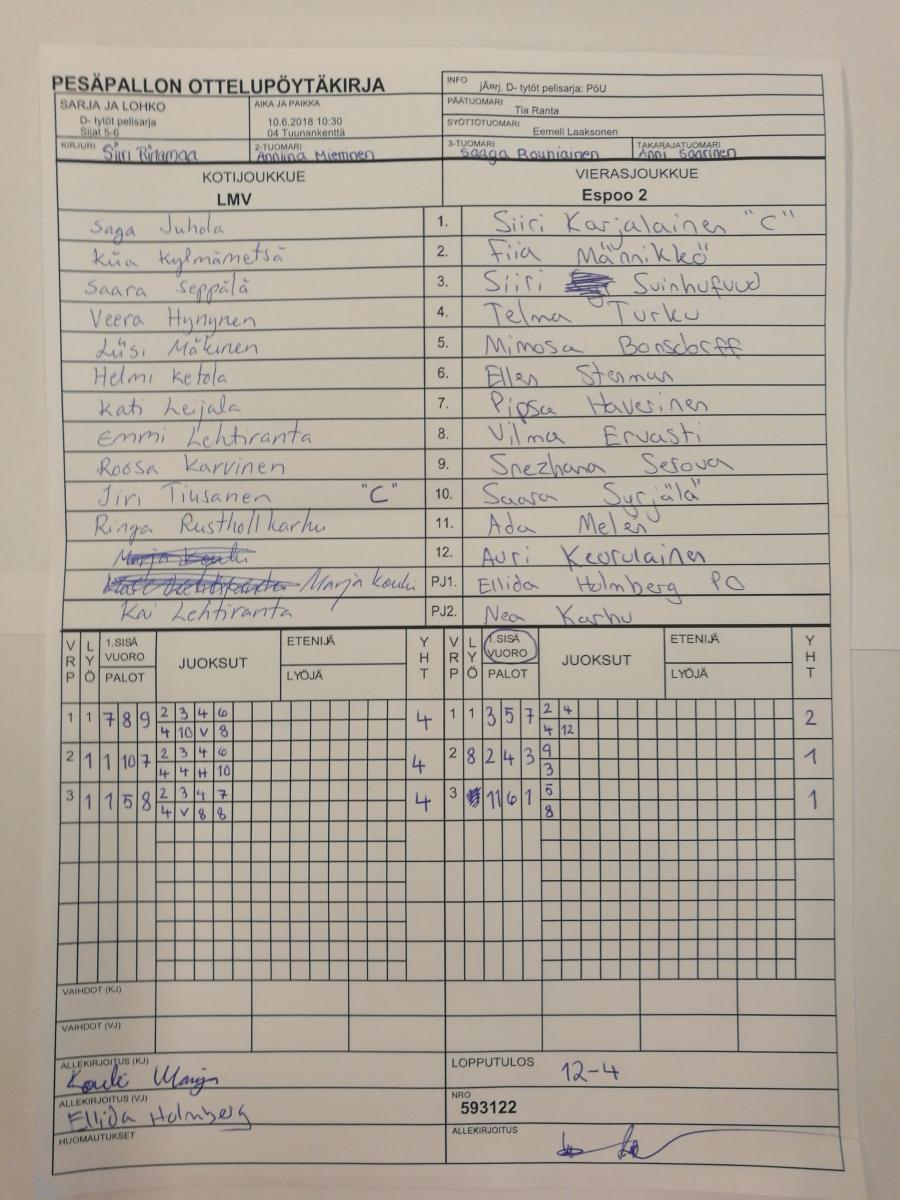 PESÄPALLON OTTELUPÖYTÄKIRJA
INFO jÃ¤rj. D- tytöt pelisarja: PöU
SARJA JA LOHKO
D- tytöt pelisarja
Sijat 5-6
AIKA JA PAIKKA
10.6.2018 10:30
04 Tuunankenttä
PÄÄTUOMARI Tia Ranta
SYÖTTÖTUOMARI Eemeli Laaksonen
KIRJURI Siiri
2-TUOMARI Anniina Miettinen
3-TUOMARI Saaga Rouniainen
TAKARAJATUOMARI Anni Saarinen
KOTIJOUKKUE
LMV
VIERASJOUKKUE
Espoo 2
Saga Juhola 1. Siiri Karjalainen "C"
Kiia Kylmämetsä 2. Fiia Männikkö
Saara Seppälä 3. Siiri Svinhufvud
Veera Hynynen 4. Telma Turku
Liisi Mäkinen 5. Mimosa Bonsdorff
Helmi Ketola 6. Ellen Stenman
Kati Leijala 7. Pipsa Haverinen
Emmi Lehtiranta 8. Vilma Ervasti
Roosa Karvinen 9. Snezhana Serova
Jiri Tiusanen "C" 10. Saara Syrjälä
Ringa Rusthollkarhu 11. Ada Melén
Marja Kouki 12. Auri Keurulainen
Marja Kouki PJ1. Ellida Holmberg PO
Kai Lehtiranta PJ2. Nea Karhu
VRP LYÖ 1.SISÄ VUORO PALOT JUOKSUT ETENIJÄ LYÖJÄ YHT VRP LYÖ 1.SISÄ VUORO PALOT JUOKSUT ETENIJÄ LYÖJÄ YHT
1 1 7 8 9 2 3 4 6 4 1 1 3 5 7 2 4 2
4 10 V 8 4 12
2 1 1 10 7 2 3 4 6 4 2 8 2 4 3 9 1
4 4 H 10 3
3 1 1 5 8 2 3 4 7 4 3 11 6 1 5 1
4 V 8 8 8
VAIHDOT (KJ)
VAIHDOT (VJ)
ALLEKIRJOITUS (KJ) Kouki Marja
LOPPUTULOS 12-4
ALLEKIRJOITUS (VJ) Ellida Holmberg
NRO 593122
HUOMAUTUKSET
ALLEKIRJOITUS